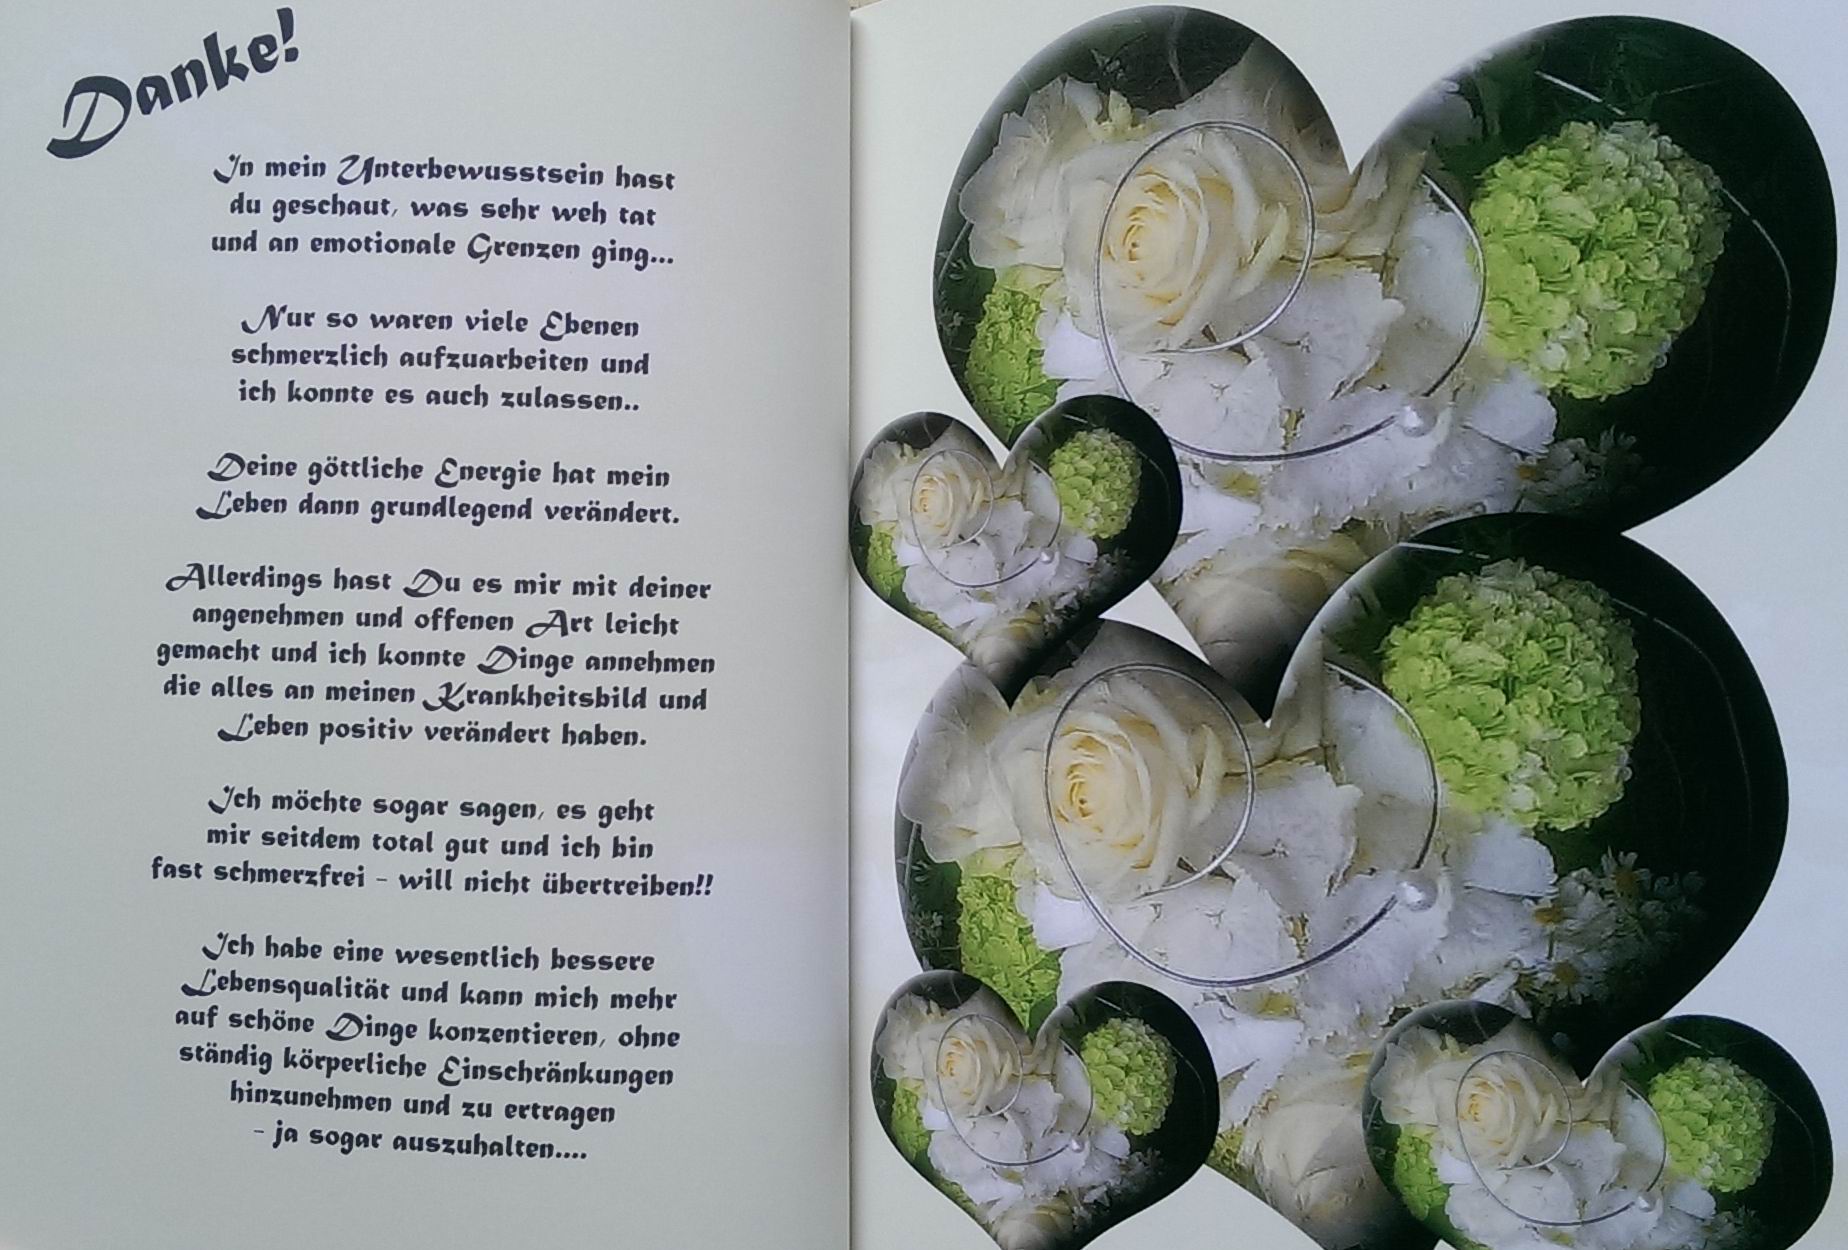 Danke!
In mein Unterbewusstsein hast
du geschaut, was sehr weh tat
und an emotionale Grenzen ging...
Nur so waren viele Ebenen
schmerzlich aufzuarbeiten und
ich konnte es auch zulassen..
Deine göttliche Energie hat mein
Leben dann grundlegend verändert.
Allerdings hast Du es mir mit deiner
angenehmen und offenen Art leicht
gemacht und ich konnte Dinge annehmen
die alles an meinen Krankheitsbild und
Leben positiv verändert haben.
Ich möchte sogar sagen, es geht
mir seitdem total gut und ich bin
fast schmerzfrei - will nicht übertreiben!!
Ich habe eine wesentlich bessere
Lebensqualität und kann mich mehr
auf schöne Dinge konzentieren, ohne
ständig körperliche Einschränkungen
hinzunehmen und zu ertragen
- ja sogar auszuhalten....